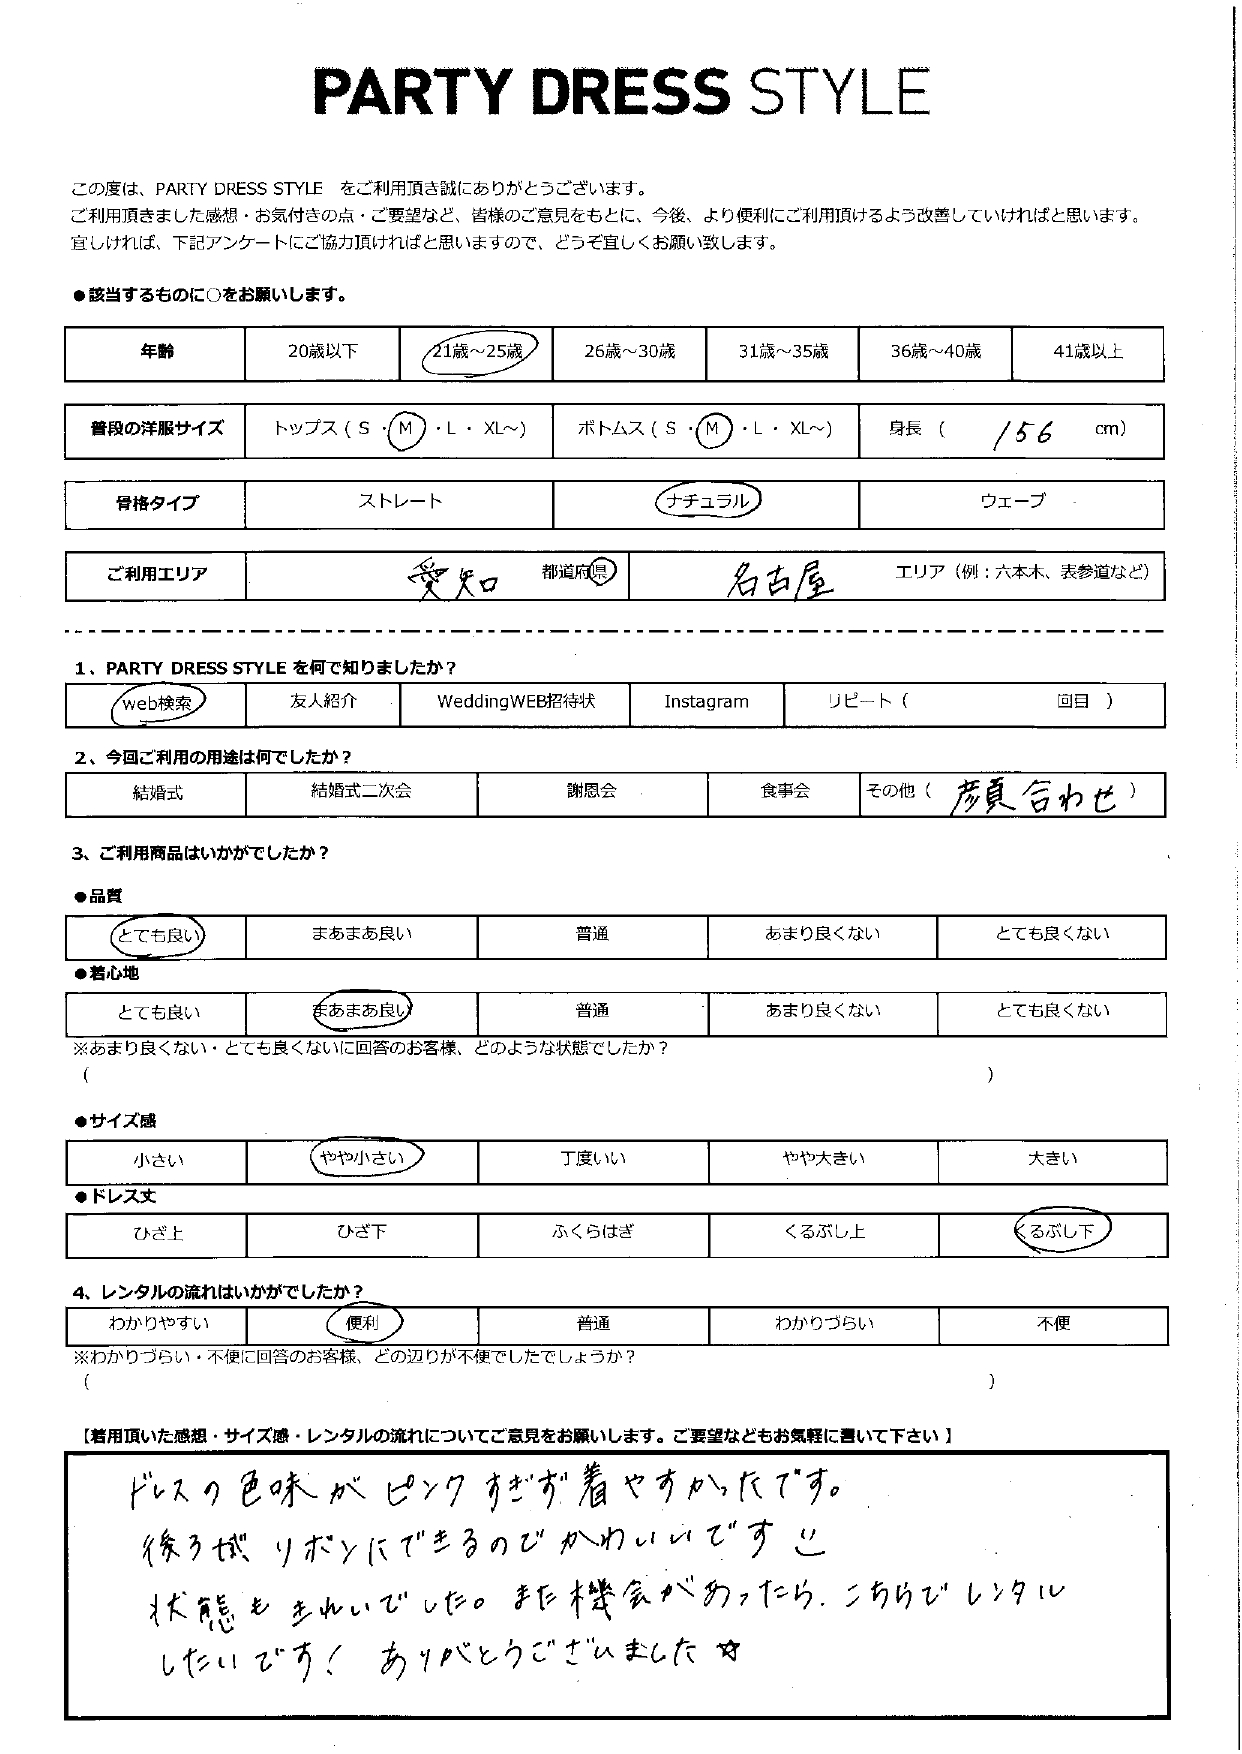 PARTY DRESS STYLE
この度は、PARTY DRESS STYLE をご利用頂き誠にありがとうございます。
ご利用頂きました感想・お気付きの点・ご要望など、皆様のご意見をもとに、今後、より便利にご利用頂けるよう改善していければと思います。
宜しければ、下記アンケートにご協力頂ければと思いますので、どうぞ宜しくお願い致します。
●該当するものに○をお願いします。
年齢 20歳以下 21歳～25歳 26歳～30歳 31歳～35歳 36歳～40歳 41歳以上
普段の洋服サイズ トップス ( S ・M ・L ・ XL～) ボトムス ( S ・M ・L ・ XL～) 身長 ( 156 cm)
骨格タイプ ストレート ナチュラル ウェーブ
ご利用エリア 愛知 都道府県 名古屋 エリア（例：六本木、表参道など）
1、PARTY DRESS STYLE を何で知りましたか？
web検索 友人紹介 WeddingWEB招待状 Instagram リピート ( 回目 )
2、今回ご利用の用途は何でしたか？
結婚式 結婚式二次会 謝恩会 食事会 その他 ( 顔合わせ )
3、ご利用商品はいかがでしたか？
●品質
とても良い まあまあ良い 普通 あまり良くない とても良くない
●着心地
とても良い まあまあ良い 普通 あまり良くない とても良くない
※あまり良くない・とても良くないに回答のお客様、どのような状態でしたか？
( )
●サイズ感
小さい やや小さい 丁度いい やや大きい 大きい
●ドレス丈
ひざ上 ひざ下 ふくらはぎ くるぶし上 くるぶし下
4、レンタルの流れはいかがでしたか？
わかりやすい 便利 普通 わかりづらい 不便
※わかりづらい・不便に回答のお客様、どの辺りが不便でしたでしょうか？
( )
【着用頂いた感想・サイズ感・レンタルの流れについてご意見をお願いします。ご要望などもお気軽に書いて下さい 】
ドレスの色味がピンクすぎず着やすかったです。
後ろが、リボンにできるのでかわいいです
状態もきれいでした。また機会があったら、こちらでレンタル
したいです！ ありがとうございました☆